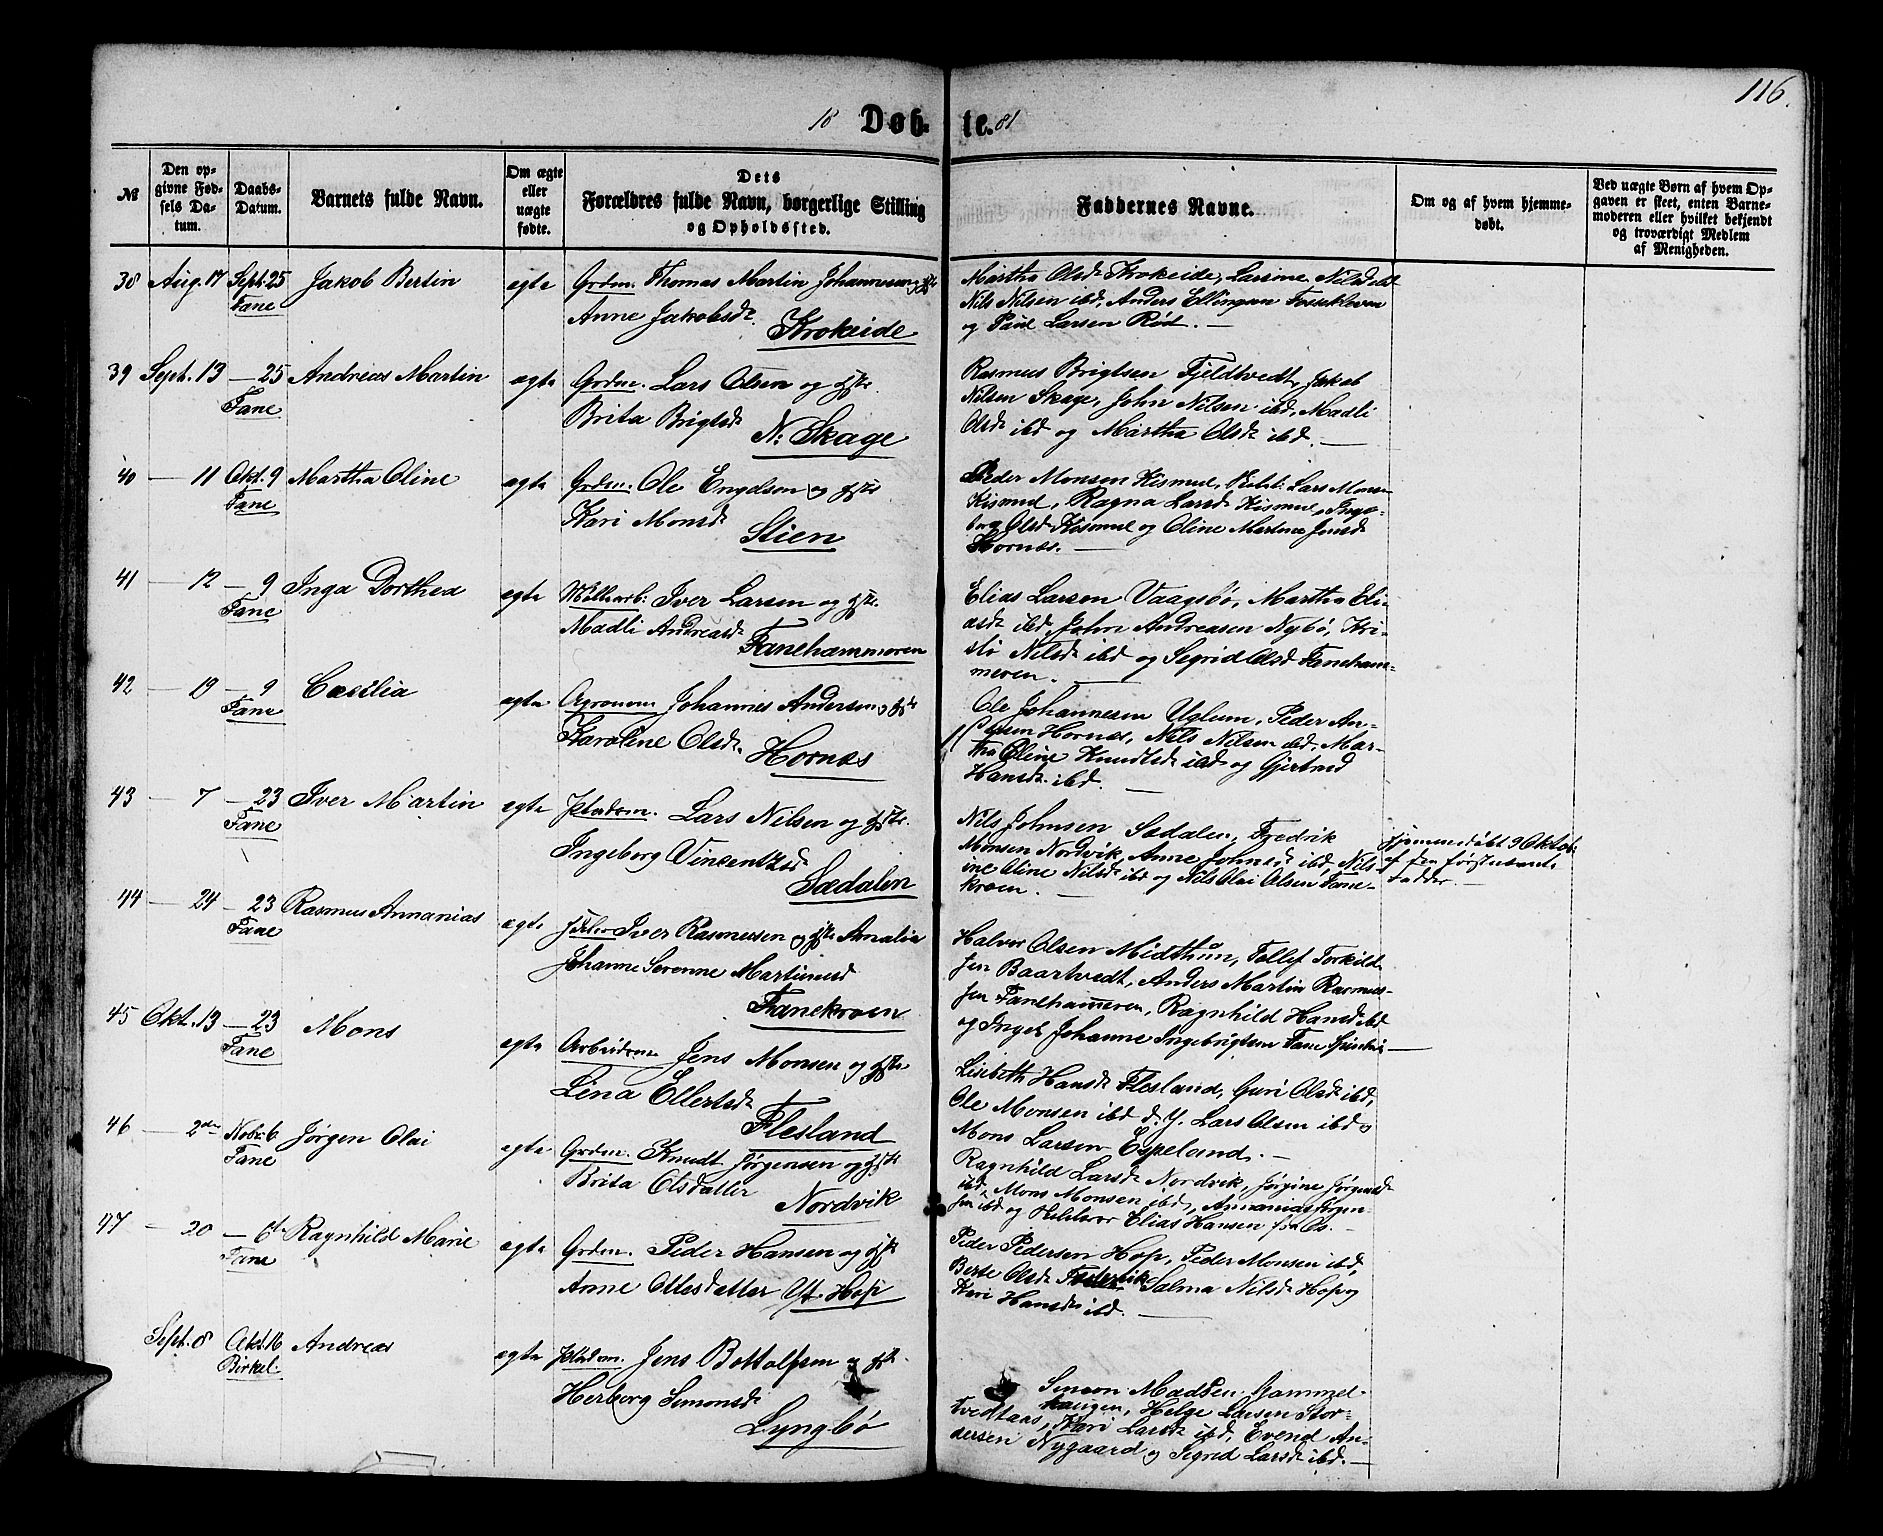 116.
18 Døb- te. 81
№
Den opgivne Fødsels Datum.
Daabs-Datum.
Barnets fulde Navn.
Om ægte eller uægte fødte.
Dets Forældres fulde Navn, borgerlige Stilling og Opholdssted.
Faddernes Navne.
Om og af hvem hjemmedøbt.
Ved uægte Børn af hvem Opgaven er skeet, enten Barnemoderen eller hvilket bekjendt og troværdigt Medlem af Menigheden.
38 Aug. 17 Sept. 25 Jakob Bertin egte Grdm. Thomas Martin Johannesen og Hst
Fane Anne Jakobsdr
Krokeide
Martha Olsdr Krokeide, Larsine Nilsd ibd
Nils Nilsen ibd, Anders Ellingsen Fosseskleven
og Paul Larsen Rød. —
39 Sept. 13 — 25 Andreas Martin egte Grdm. Lars Olsen og Hst
Fane Brita Brigtsdr
N: Skage
Rasmus Brigtsen Fjeldtvedt, Jakob
Nilsen Skage, John Nilsen ibd, Madli
Olsdr ibd og Martha Olsdr ibd. —
40 — 11 Okt. 9 Martha Oline egte Grdm. Ole Engelsen og Hst
Fane Kari Monsdr
Stien
Peder Monsen Kismul, Lars Monsen
Kismul, Ragna Larsdr Kismul, Inge-
borg Olsdr Kismul og Oline Martine Jensdr
Hornæs. —
41 — 12 — 9 Inga Dorthea egte Iver Larsen og Hst.
Fane Madli Andreasdr
Fanehammeren
Elias Larsen Vaagsbø, Martha Eli-
asdr ibd, John Andreasen Nybø, Kri-
sti Nilsdr ibd og Segrid Olsd Faneham-
meren. —
42 — 19 — 9 Cæsilia egte Agronom Johannes Andersen og Hst
Fane Karoline Olsdr
Hornæs
Ole Johannesen Uglum, Peder An-
dersen Hornæs, Nils Nilsen ibd, Mar-
tha Oline Knudtsdr ibd og Gjertrud
Hansdr ibd.
43 — 7 — 23 Iver Martin egte Pladsm. Lars Nilsen og Hst.
Fane Ingeborg Vinsentsdr
Sædalen
Nils Johnsen Sædalen, Fredrik
Monsen Nordvik, Anne Johnsdr ibd, Nils-
ine Oline Nilsdr ibd og Nils Olai Olsen Fane-
kroen. —
Hjemmedøbt 9 Oktob:
af den førstenævnte
Fadder. —
44 — 24 — 23 Rasmus Annanias egte Iver Rasmussen og Hst Amalia
Fane Johanne Serenne Martinusd
Fanekroen
Halvor Olsen Midthun, Tollef Torkild-
sen Baartvedt, Anders Martin Rasmus-
sen Fanehammeren, Ragnhild Hansdr ibd
og Johanne Ingebrigtsen Fane —
45 Okt. 13 — 23 Mons egte Arbeidsm. Jens Monsen og Hst
Fane Lina Ellertsdr
Flesland
Lisbeth Hansdr Flesland, Guri Olsdr ibd,
Ole Monsen ibd d. Y. Lars Olsen ibd og
Mons Larsen Espeland. —
46 — 2den Nobr. 6 Jørgen Olai egte Grdm. Knudt Jørgensen og Hst
Fane Brita Olsdatter
Nordvik
Ragnhild Larsdr Nordvik, Jørgine Jørgensdr
ibd, Mons Monsen ibd, Annanias Jørgen-
sen ibd og Elias Hansen fra Os. —
47 — 20 — 6te Ragnhild Marie egte Grdm. Peder Hansen og Hst
Fane Anne Ollesdatter Yt. Hop
Peder Pedersen Hop, Peder Monsen ibd,
Berte Olsdr Salma Nilsdr Hop og
Kari Hansdr ibd. —
Sept. 8 Okt. 16 Andreas egte Pladsm. Jens Bottolfsen og Hst.
Birkel. Herborg Simonsdr
Lyngbø
Simon Madsen Gammel-
haugen, Helge Larsen Stor-
tvedtaas, Kari Larsdr ibd, Evend An-
dersen Nygaard og Segrid Larsdr ibd. —